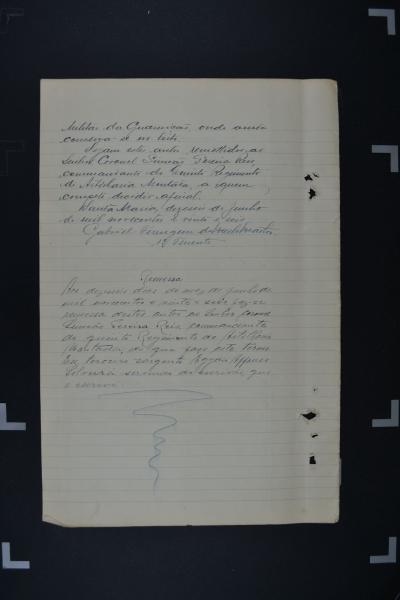 Militar da Guarnição, onde ainda
conserva-se no leito.
Sejam estes autos remettidos ao
Senhor Coronel Simão Pereira Reis,
commandante do Quinto Regimento
de Artilharia Montada, a quem
compete decidir afinal.
Santa Maria, dezeseis de junho
de mil novecentos e vinte e seis.
Gabriel
1º Tenente
Remessa
Aos dezeseis dias do mez de junho de
mil novecentos e vinte e seis faz-se
remessa destes autos ao Senhor Coronel
Simão Pereira Reis commandante
do quinto Regimento de Artilharia
Montada, do que faço este termo.
Eu, terceiro sargento
servindo de escrivão que
o escrevi.